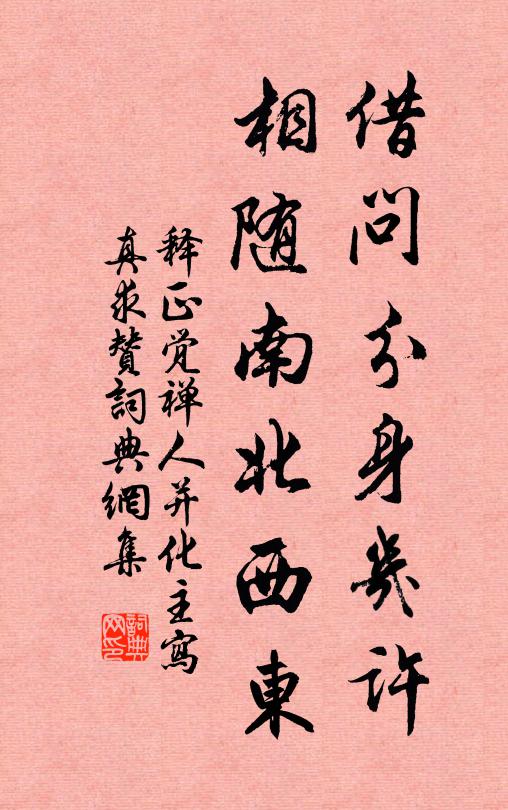 借问分身幾许
相随南北西東
释正觉禅人并化主寫
真求赞詞典網集
詞典网印